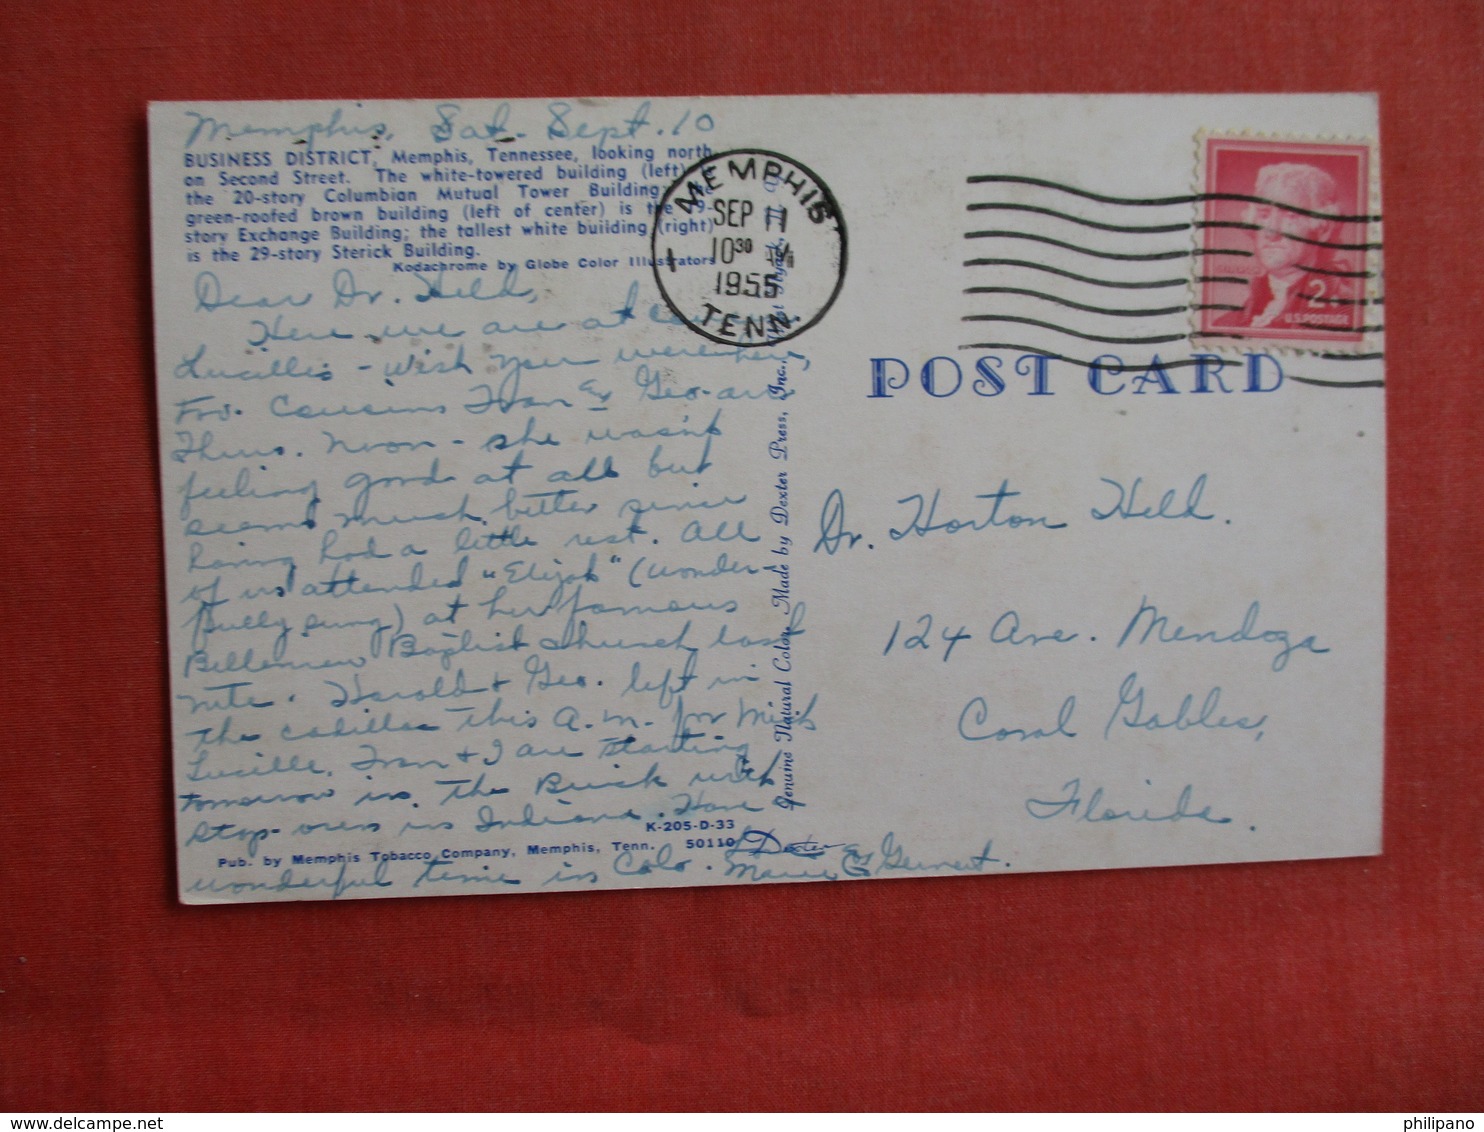 Memphis, Sat. Sept. 10
BUSINESS DISTRICT, Memphis, Tennessee, looking north
on Second Street. The white-towered building (left)
the 20-story Columbian Mutual Tower Building; the
green-roofed brown building (left of center) is the 19-
story Exchange Building; the tallest white building (right)
is the 29-story Sterick Building.
Kodachrome by Globe Color Illustrators
Dear Dr. Held,
Here we are at
Lucille's - wish you were here,
Cousins Fran & Geo. arr.
Thurs. noon - she wasn't
feeling good at all but
seems much better since
having had a little rest. All
of us attended "Elijah" (wonder-
fully sung) at her famous
Bellevue Baptist Church last
nite. Harold & Geo. left in
the cadillac this A.M. for Mich
Lucille, Fran & I are starting
tomorrow in the Buick with
stop-overs in Indiana. Have
K-205-D-33
Pub. by Memphis Tobacco Company, Memphis, Tenn. 50110
Dexter
wonderful time in Colo. Marie
Genuine Natural Color Made by Dexter Press, Inc.,
MEMPHIS
SEP 11
10 30 AM
1955
TENN.
1
2¢
U.S. POSTAGE
POST CARD
Dr. Horton Held.
124 Ave. Mendoza
Coral Gables,
Florida.
philipano
www.delcampe.net